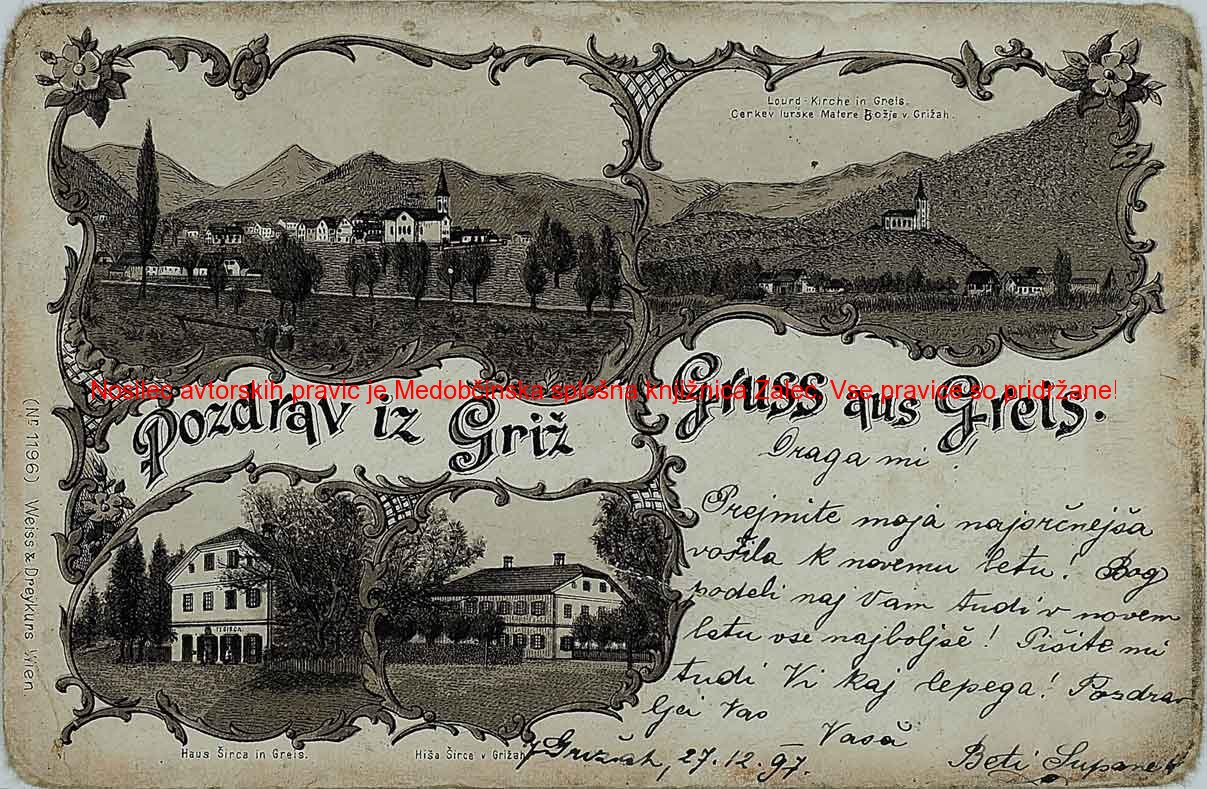 Lourd-Kirche in Greis.
Cerkev lurske Matere Božje v Grižah.
Nosilec avtorskih pravic je Medobčinska splošna knjižnica Žalec. Vse pravice so pridržane!
Pozdrav iz Griž
Gruss aus Greis.
Draga mi!
Prejmite moja najsrčnejša
vošila k novemu letu! Bog
podeli naj Vam tudi v novem
letu vse najboljše! Pišite mi
tudi Vi kaj lepega! Pozdra-
ljei Vas
Vaša
V Grižah, 27.12.97.
Beti Supanek
F. ŠIRCA
Haus Širca in Greis.
Hiša Širce v Grižah
(No 1196) Weiss & Dreykurs Wien.